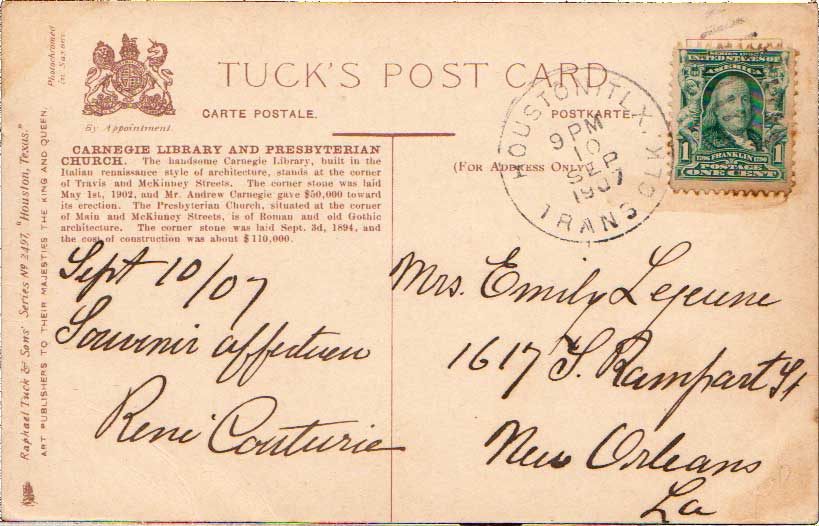 Photochromed
in Saxony
By Appointment.
TUCK'S POST CARD
CARTE POSTALE.
POSTKARTE.
CARNEGIE LIBRARY AND PRESBYTERIAN
CHURCH. The handsome Carnegie Library, built in the
Italian renaissance style of architecture, stands at the corner
of Travis and McKinney Streets. The corner stone was laid
May 1st, 1902, and Mr. Andrew Carnegie gave $50,000 toward
its erection. The Presbyterian Church, situated at the corner
of Main and McKinney Streets, is of Roman and old Gothic
architecture. The corner stone was laid Sept. 3d, 1894, and
the cost of construction was about $110,000.
Raphael Tuck & Sons' Series Nº 2497, "Houston, Texas."
ART PUBLISHERS TO THEIR MAJESTIES THE KING AND QUEEN.
(FOR ADDRESS ONLY)
HOUSTON
9 PM
10
SEP
1907
TRANS CLK.
UNITED STATES OF
AMERICA
1 FRANKLIN 1
POSTAGE
ONE CENT
Sept 10/07
Souvenir affectueu
René Couturie
Mrs. Emily Lejeune
1617 S. Rampart St
New Orleans
La